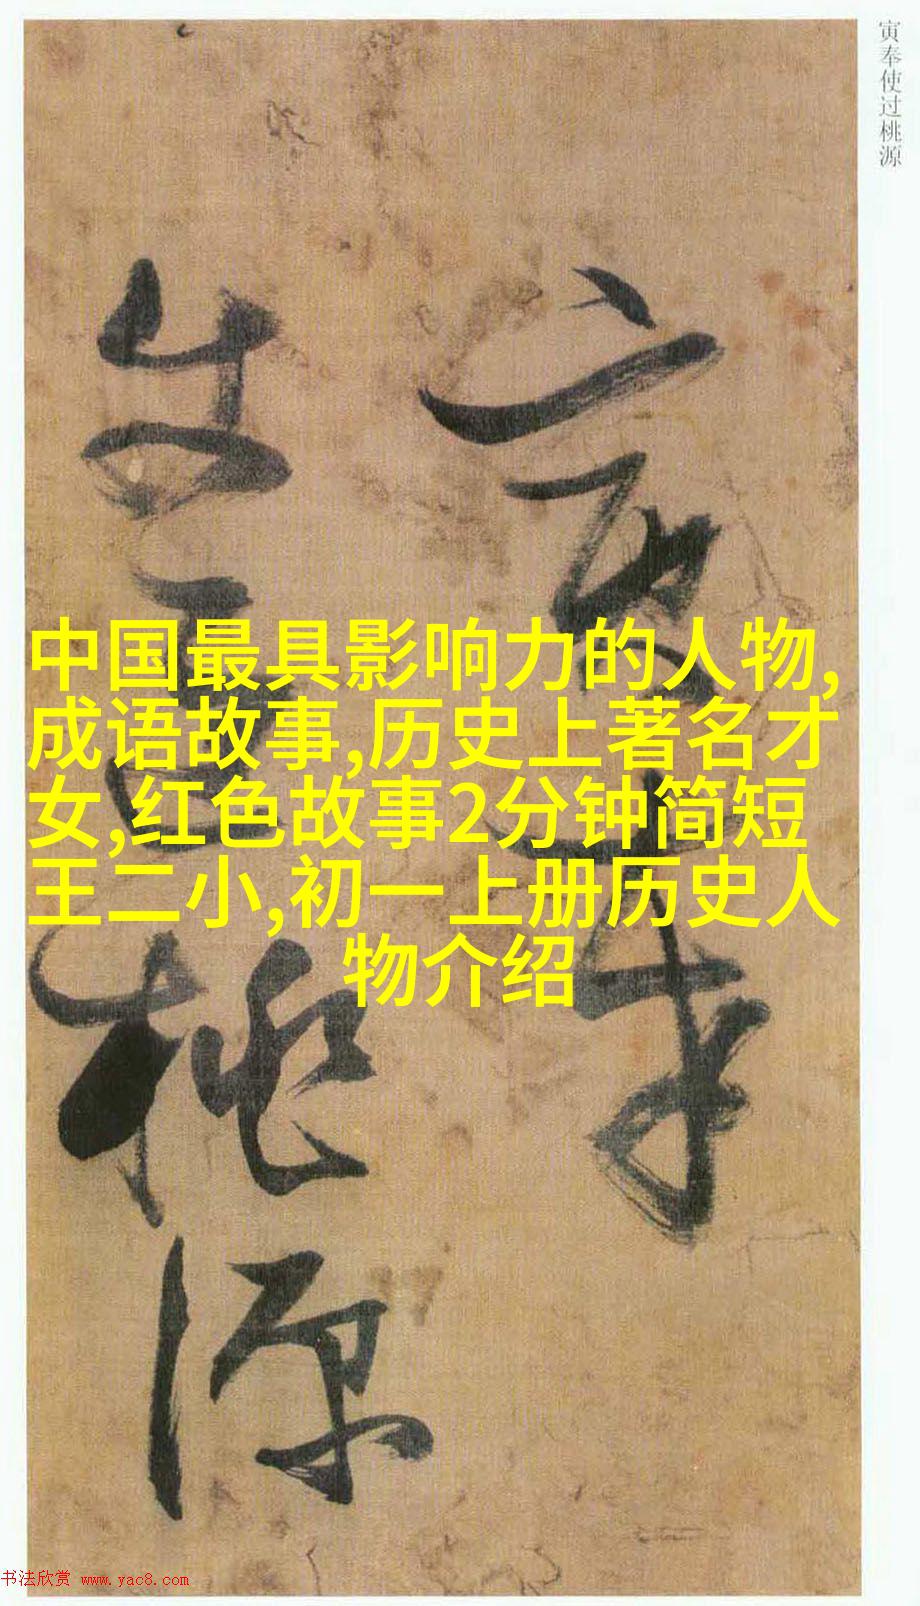 寅奉使过桃源
寅奉
使过桃源
中国最具影响力的人物,
成语故事,历史上著名才
女,红色故事2分钟简短
王二小,初一上册历史人
物介绍
书法欣赏 www.yac8.com